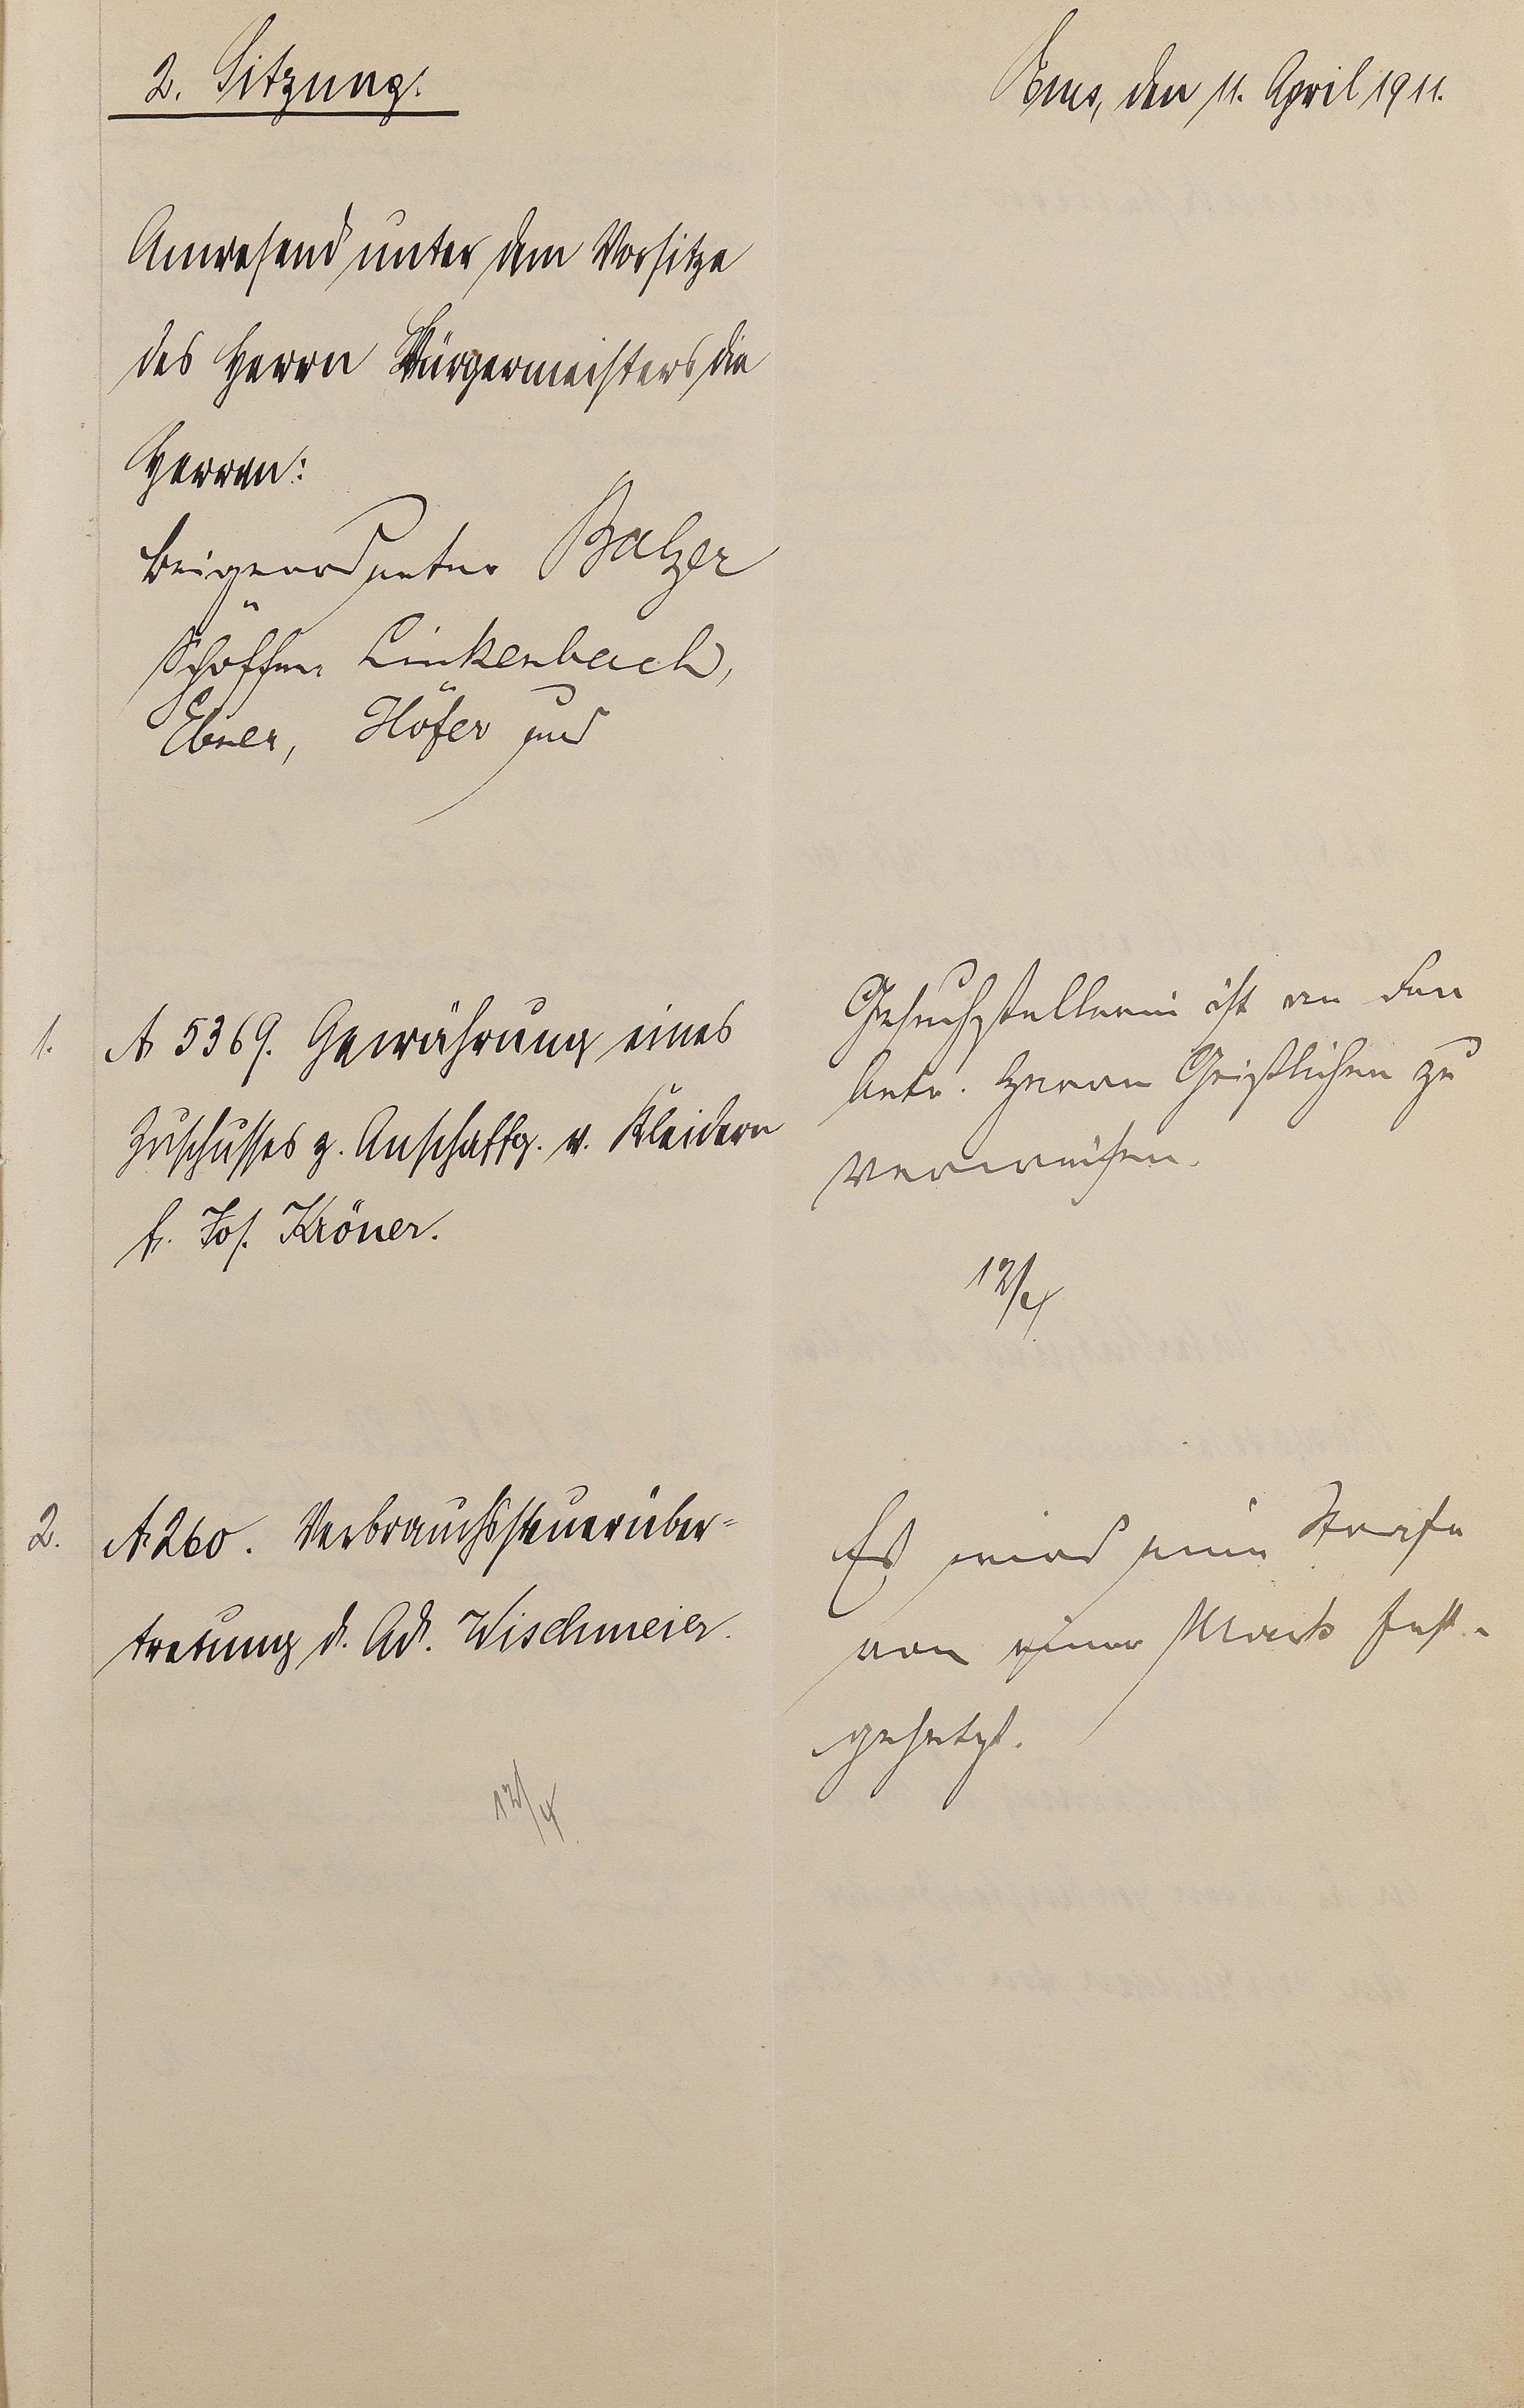 2. Sitzung.
Ems, den 11. April 1911.
Anwesend unter dem Vorsitze
des Herrn Bürgermeisters die
Herren:
Beigeordneter Balzer
Schöffen Linkenbach,
Ebner, Höfer und
1. A 5369. Gewährung eines
Zuschusses z. Anschaffg. v. Kleidern
f. Jos. Kröner.
Gesuchstellerin ist an den
betr. Herrn Geistlichen zu
verweisen.
12/4
2. A 260. Verbrauchssteuerüber-
tretung d. Ad. Wischmeier.
12/4
Es wird eine Strafe
von einer Mark fest-
gesetzt.